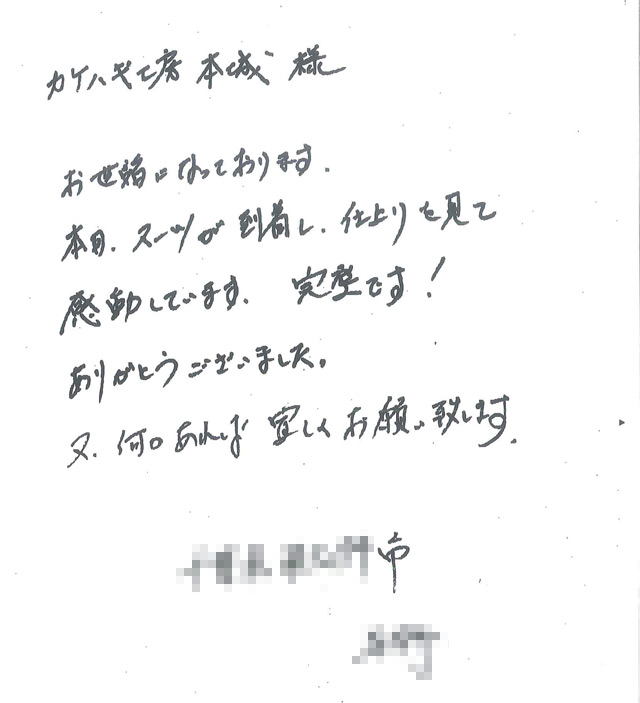 カケハギ工房 本城 様
お世話になっております.
本日、スーツが到着し、仕上りを見て
感動しています. 完璧です!
ありがとうございました。
又、何かあれば 宜しく お願い致します.
市